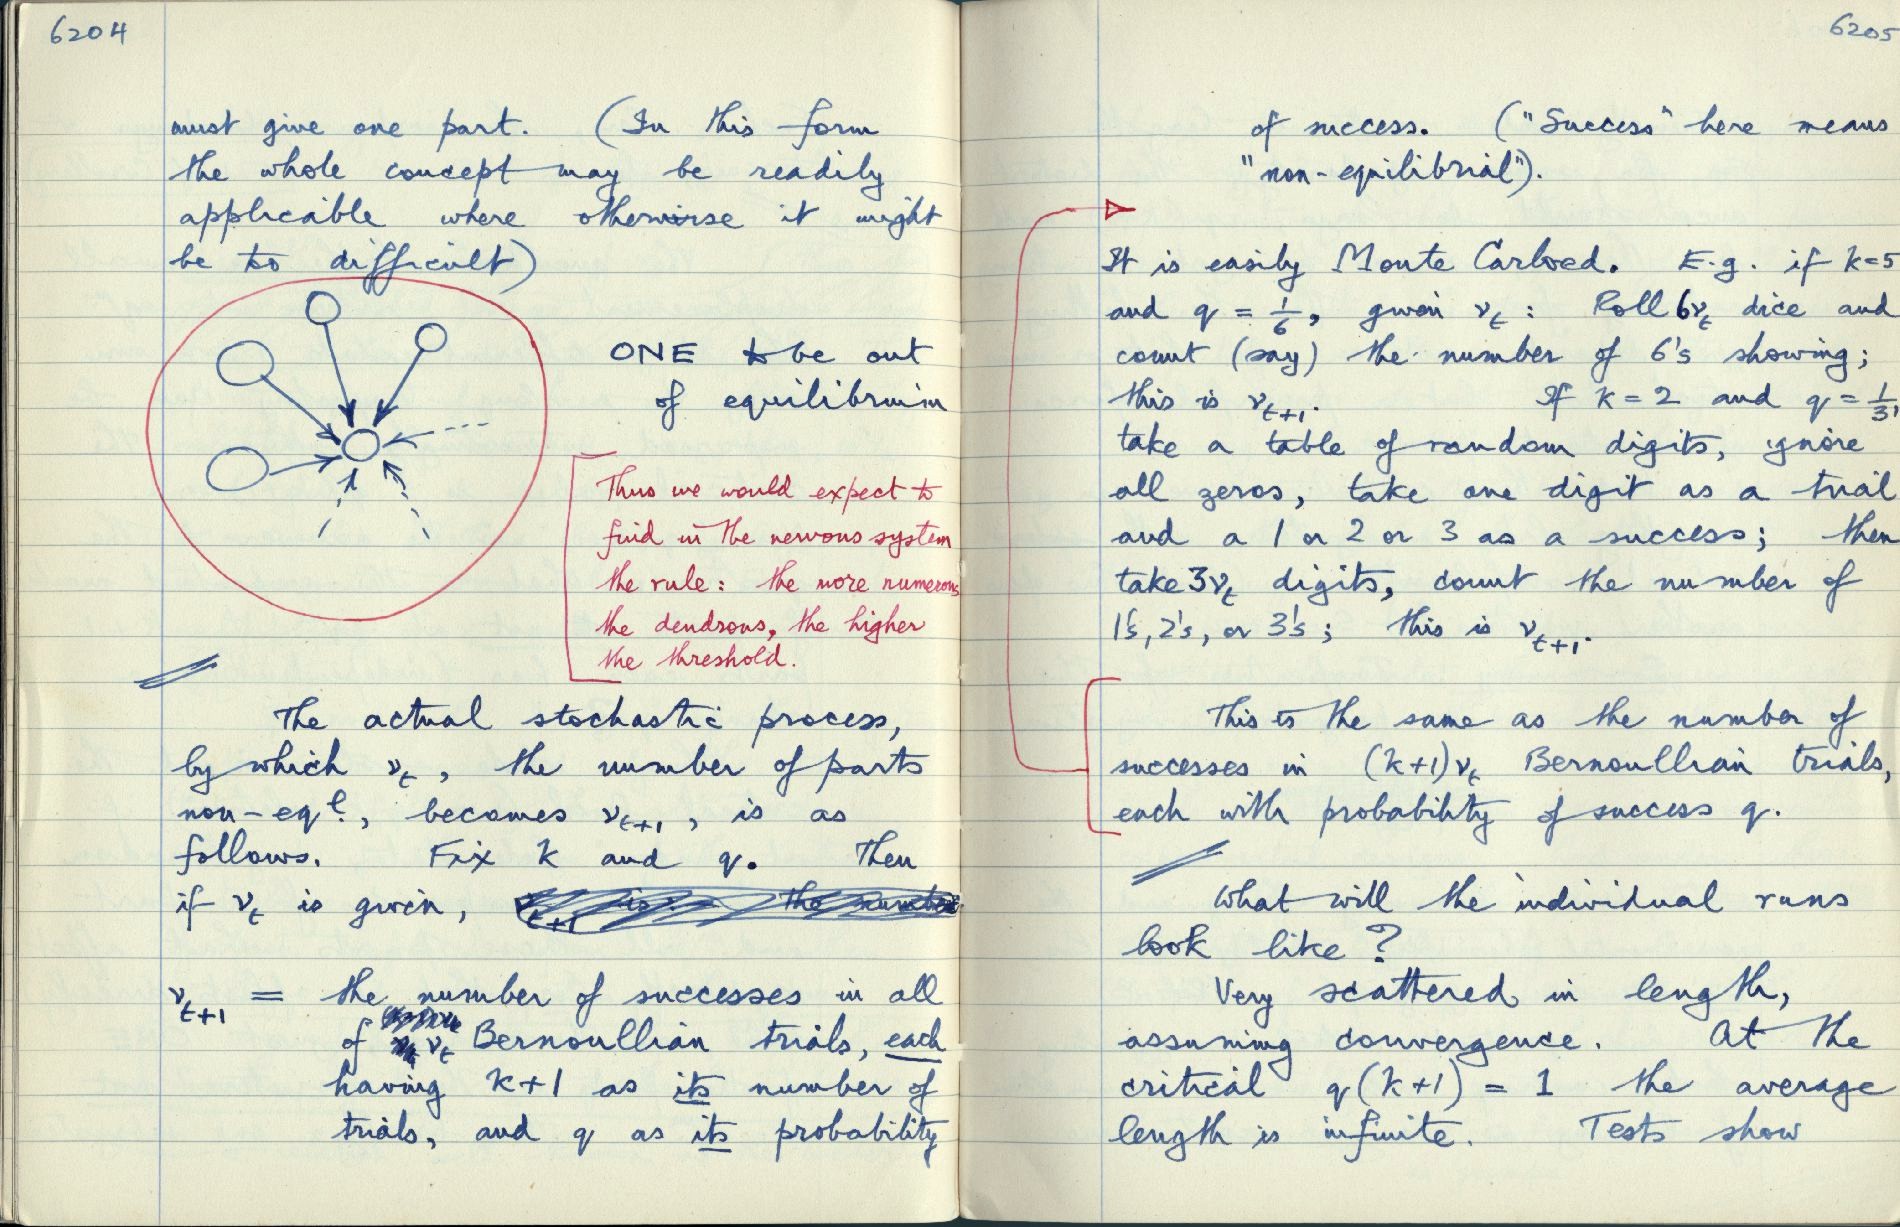 6204
must give one part. (In this form
the whole concept may be readily
applicable where otherwise it might
be too difficult)
ONE to be out
of equilibrium
Thus we would expect to
find in the nervous system
the rule: the more numerous
the dendrons, the higher
the threshold.
The actual stochastic process,
by which ν_t, the number of parts
non-eql., becomes ν_{t+1}, is as
follows. Fix k and q. Then
if ν_t is given,
ν_{t+1} = the number of successes in all
of ν_t Bernoullian trials, each
having k+1 as its number of
trials, and q as its probability
6205
of success. ("Success" here means
"non-equilibrial").
It is easily Monte Carloed. E.g. if k=5
and q = 1/6, given ν_t: Roll 6ν_t dice and
count (say) the number of 6's showing;
this is ν_{t+1}. If k=2 and q = 1/3,
take a table of random digits, ignore
all zeros, take one digit as a trial
and a 1 or 2 or 3 as a success; then
take 3ν_t digits, count the number of
1's, 2's, or 3's; this is ν_{t+1}.
This is the same as the number of
successes in (k+1)ν_t Bernoullian trials,
each with probability of success q.
What will the individual runs
look like?
Very scattered in length,
assuming convergence. At the
critical q(k+1) = 1 the average
length is infinite. Tests show